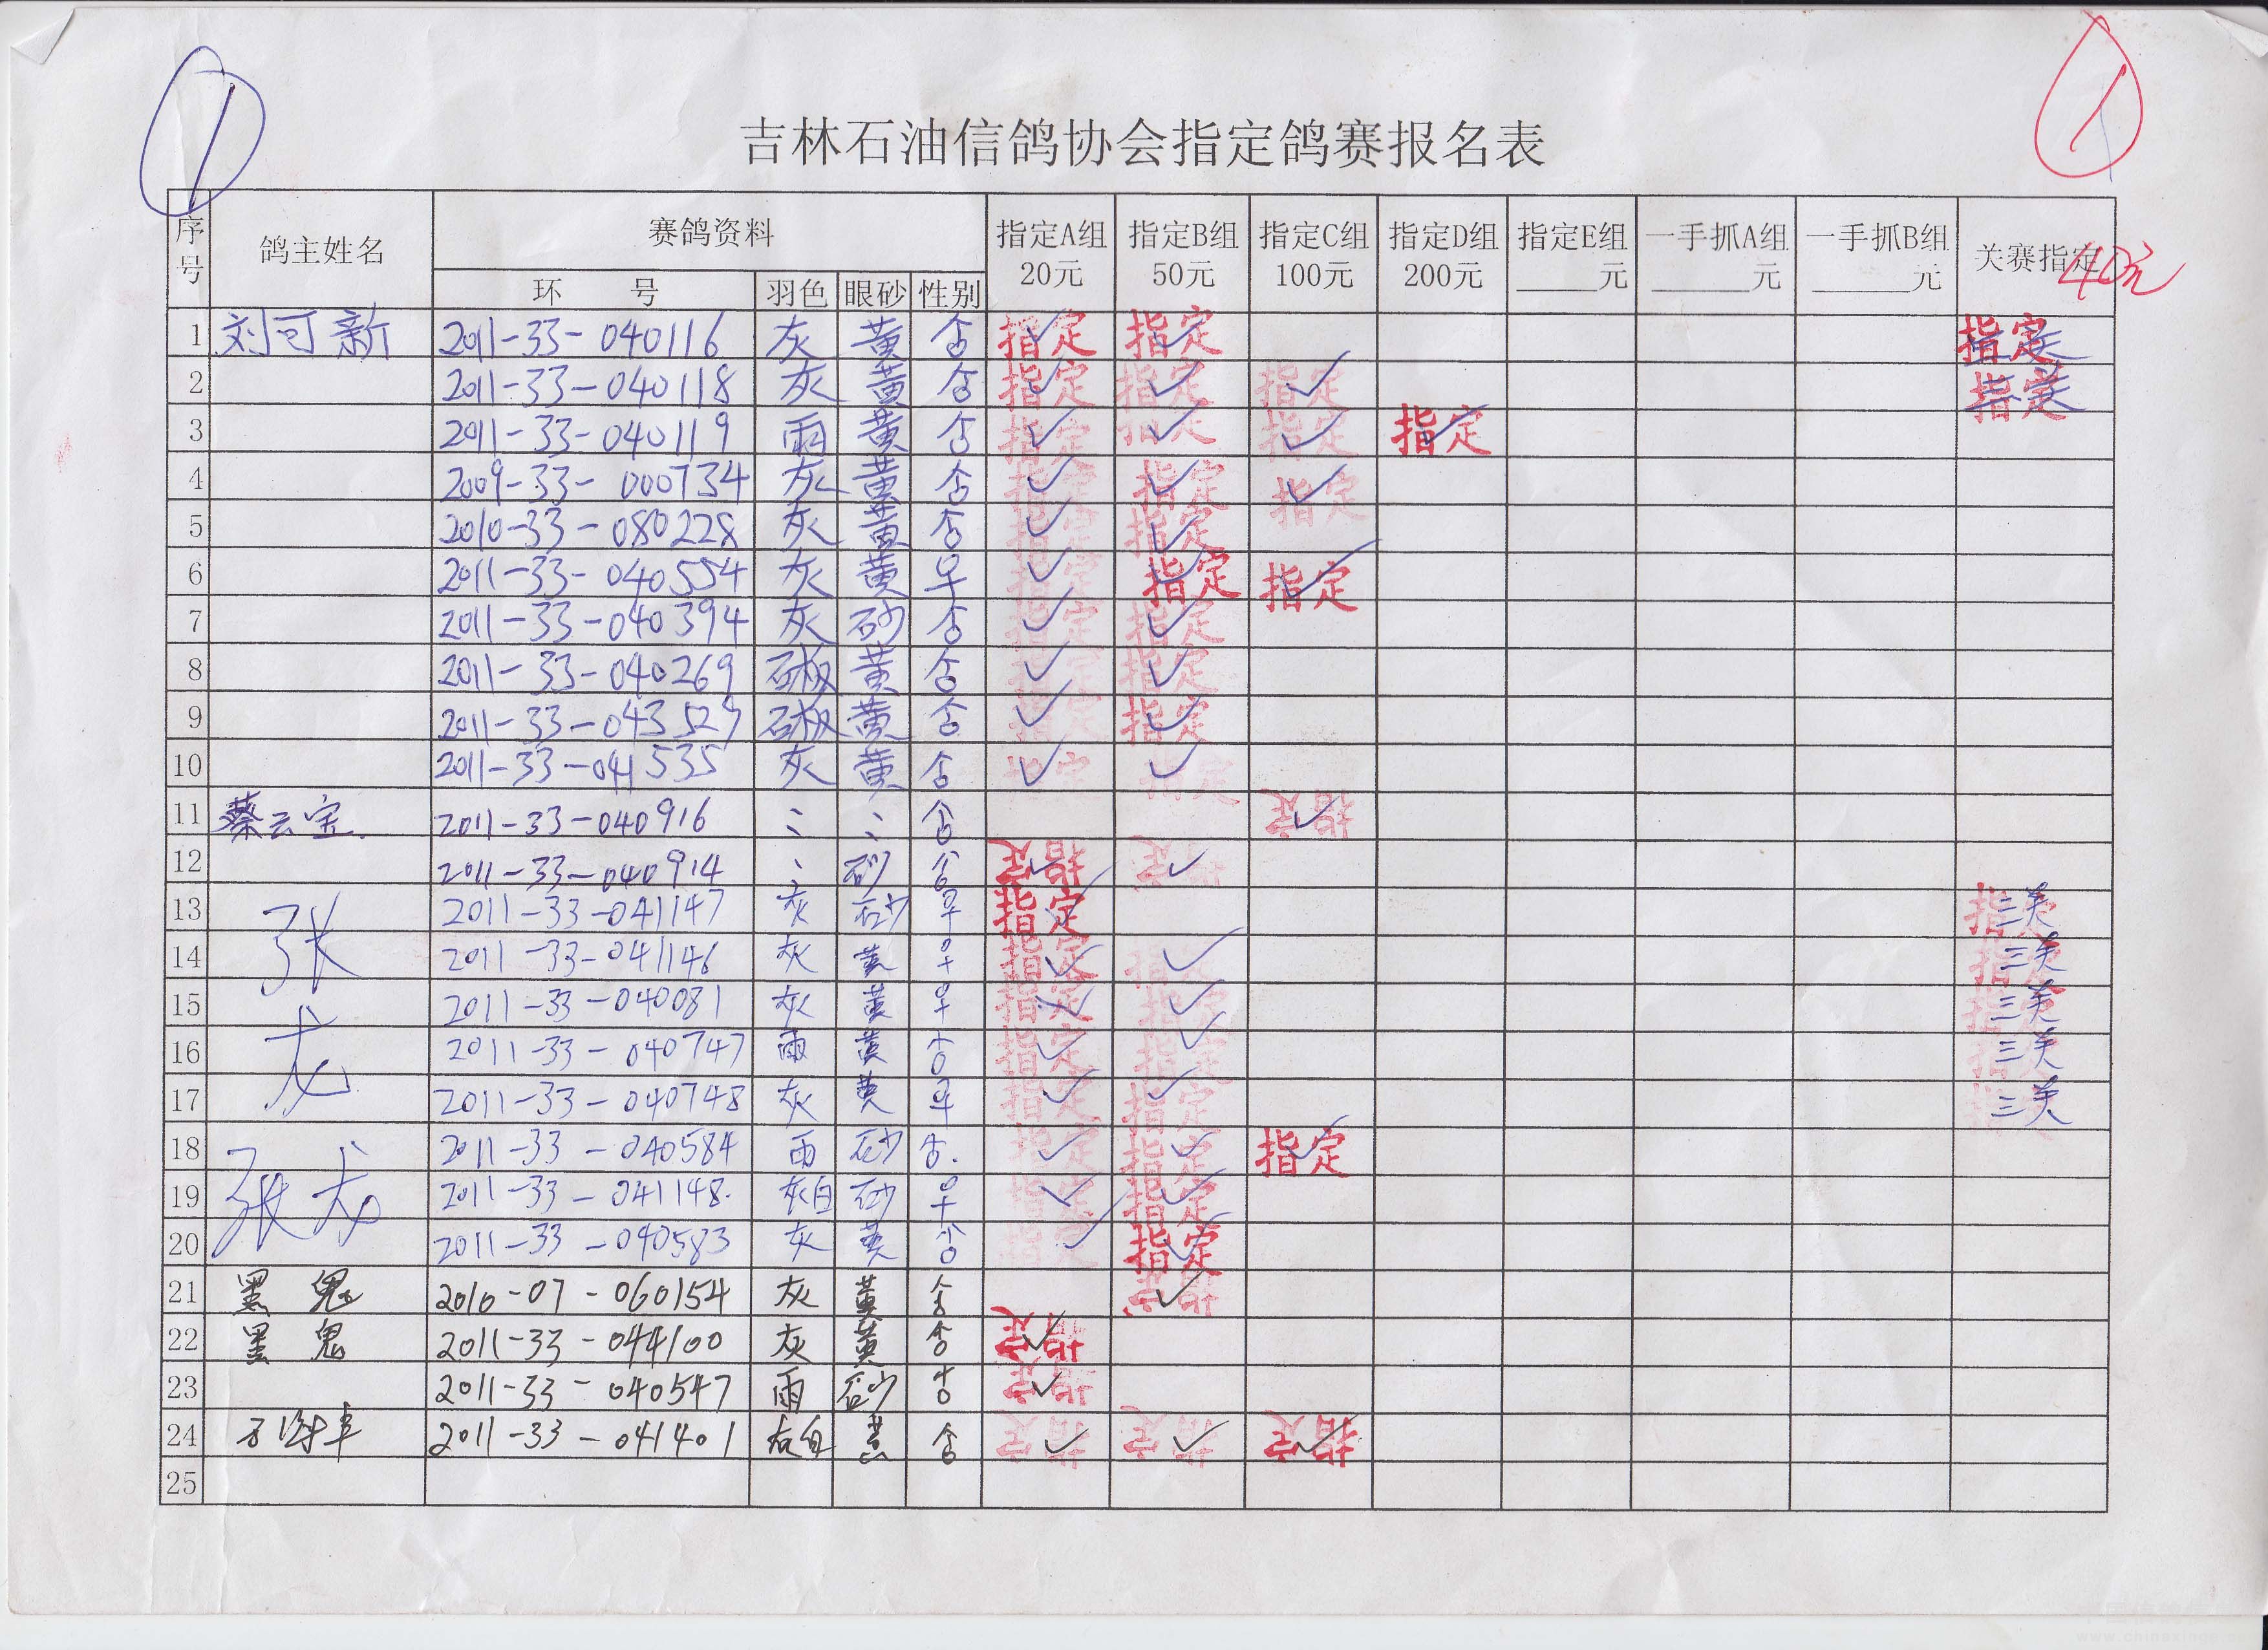 1
1
吉林石油信鸽协会指定鸽赛报名表
序号 鸽主姓名 赛鸽资料 指定A组 20元 指定B组 50元 指定C组 100元 指定D组 200元 指定E组 ____元 一手抓A组 ____元 一手抓B组 ____元 关赛指定 40元
环 号 羽色 眼砂 性别
1 刘可新 2011-33-040116 灰 黄 指定 ✓ 指定 ✓ 指定
2 2011-33-040118 灰 黄 指定 ✓ 指定 ✓ 指定 ✓ 指定
3 2011-33-040119 雨 黄 指定 ✓ 指定 ✓ 指定 ✓ 指定 ✓
4 2009-33-000734 灰 黄 指定 ✓ 指定 ✓ 指定 ✓
5 2010-33-080228 灰 黄 指定 ✓ 指定 ✓
6 2011-33-040554 灰 黄 ♀ 指定 ✓ 指定 ✓ 指定 ✓
7 2011-33-040394 灰 砂 指定 ✓ 指定 ✓
8 2011-33-040269 石板 黄 指定 ✓ 指定 ✓
9 2011-33-043527 石板 黄 指定 ✓ 指定 ✓
10 2011-33-041535 灰 黄 指定 ✓ 指定 ✓
11 蔡云宝 2011-33-040916 指定 ✓
12 2011-33-040914 砂 指定 ✓ 指定 ✓
13 张 2011-33-041147 灰 砂 ♀ 指定 ✓ 指定 三关
14 2011-33-041146 灰 黄 ♀ 指定 ✓ 指定 ✓ 指定 三关
15 龙 2011-33-040081 灰 黄 ♀ 指定 ✓ 指定 ✓ 指定 三关
16 2011-33-040747 雨 黄 指定 ✓ 指定 ✓ 指定 三关
17 2011-33-040748 灰 黄 ♀ 指定 ✓ 指定 ✓ 指定 三关
18 2011-33-040584 雨 砂 指定 ✓ 指定 ✓ 指定 ✓
19 张龙 2011-33-041148 灰白 砂 ♀ 指定 ✓ 指定 ✓
20 2011-33-040583 灰 黄 指定 ✓ 指定 ✓
21 黑鬼 2010-07-060154 灰 黄 指定 ✓
22 黑鬼 2011-33-044100 灰 黄 指定 ✓
23 2011-33-040547 雨 砂 指定 ✓
24 2011-33-041401 黄 指定 ✓ 指定 ✓ 指定 ✓
25